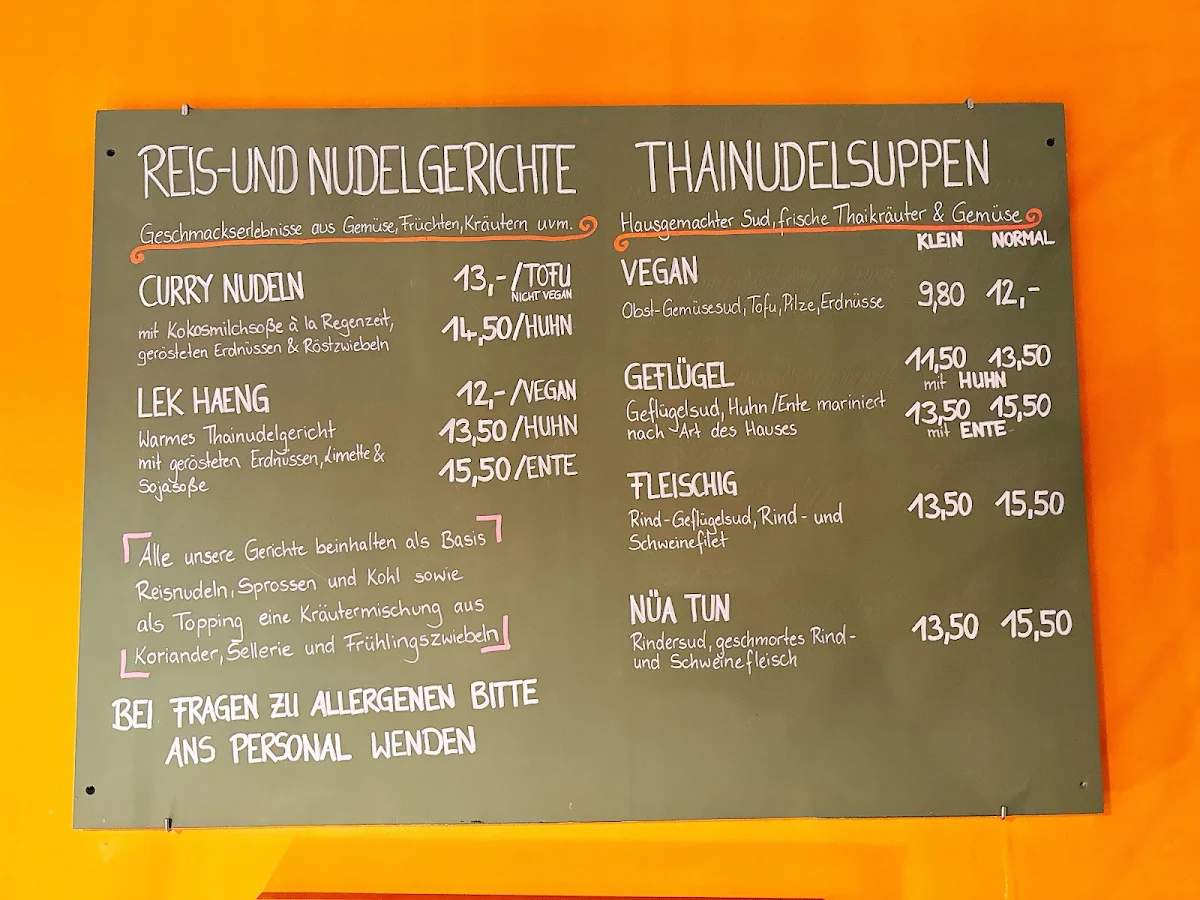 REIS-UND NUDELGERICHTE
Geschmackserlebnisse aus Gemüse, Früchten, Kräutern uvm.
CURRY NUDELN
13,-/TOFU
NICHT VEGAN
mit Kokosmilchsoße à la Regenzeit,
gerösteten Erdnüssen & Röstzwiebeln
14,50/HUHN
LEK HAENG
12,-/VEGAN
Warmes Thainudelgericht
mit gerösteten Erdnüssen, Limette &
Sojasoße
13,50/HUHN
15,50/ENTE
Alle unsere Gerichte beinhalten als Basis
Reisnudeln, Sprossen und Kohl sowie
als Topping eine Kräutermischung aus
Koriander, Sellerie und Frühlingszwiebeln
BEI FRAGEN ZU ALLERGENEN BITTE
ANS PERSONAL WENDEN
THAINUDELSUPPEN
Hausgemachter Sud, frische Thaikräuter & Gemüse
KLEIN NORMAL
VEGAN
Obst-Gemüsesud, Tofu, Pilze, Erdnüsse
9,80 12,-
GEFLÜGEL
Geflügelsud, Huhn/Ente mariniert
nach Art des Hauses
11,50 13,50
mit HUHN
13,50 15,50
mit ENTE
FLEISCHIG
Rind-Geflügelsud, Rind- und
Schweinefilet
13,50 15,50
NÜA TUN
Rindersud, geschmortes Rind-
und Schweinefleisch
13,50 15,50